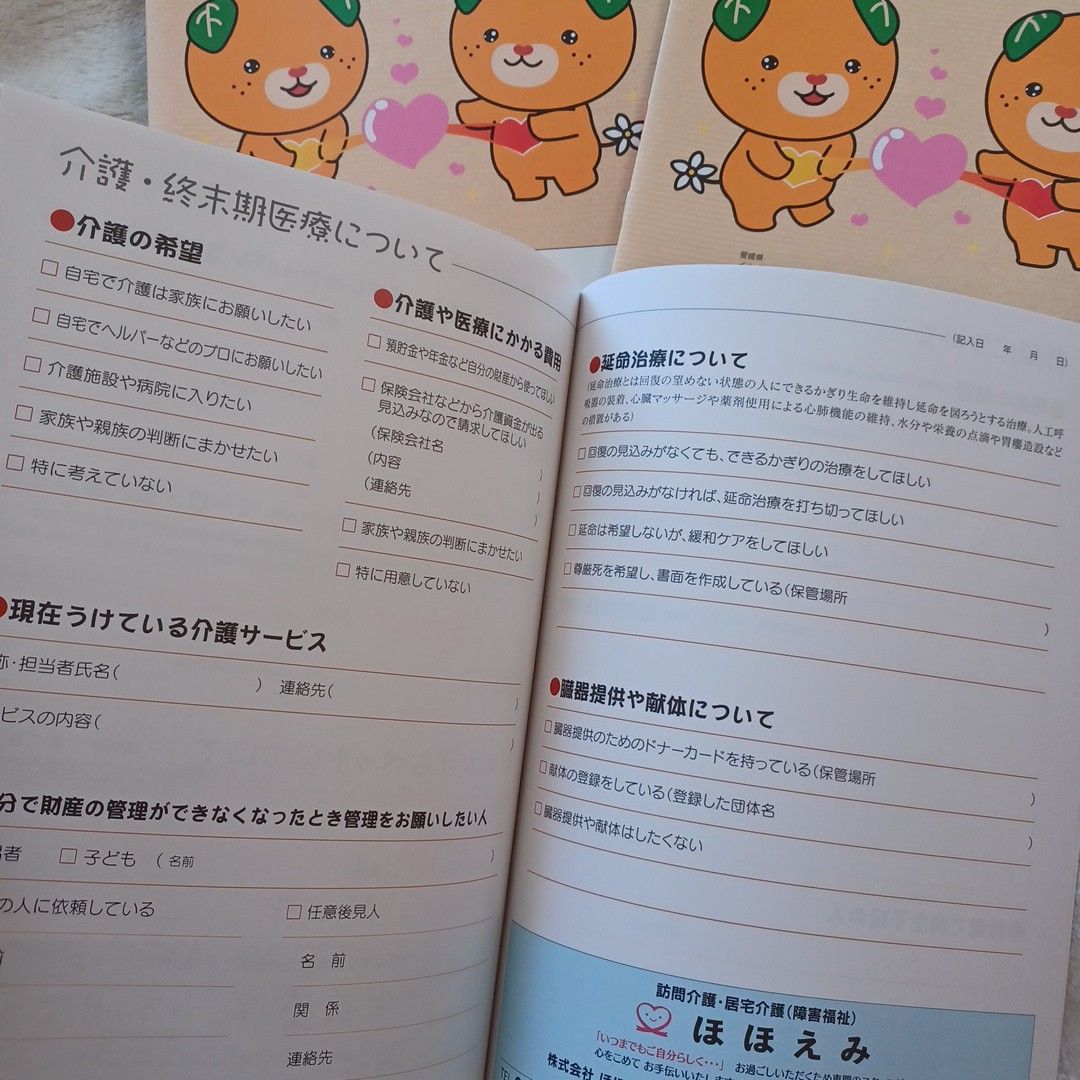 愛媛県
介護・終末期医療について
●介護の希望
□ 自宅で介護は家族にお願いしたい
□ 自宅でヘルパーなどのプロにお願いしたい
□ 介護施設や病院に入りたい
□ 家族や親族の判断にまかせたい
□ 特に考えていない
●介護や医療にかかる費用
□ 預貯金や年金など自分の財産から使ってほしい
□ 保険会社などから介護資金が出る
見込みなので請求してほしい
(保険会社名 )
(内容 )
(連絡先 )
□ 家族や親族の判断にまかせたい
□ 特に用意していない
●現在うけている介護サービス
称・担当者氏名( ) 連絡先( )
ビスの内容( )
分で財産の管理ができなくなったとき管理をお願いしたい人
者 □ 子ども ( 名前 )
の人に依頼している
前
□ 任意後見人
名 前
関 係
連絡先
(記入日 年 月 日)
●延命治療について
(延命治療とは回復の望めない状態の人にできるかぎり生命を維持し延命を図ろうとする治療。人工呼
吸器の装着、心臓マッサージや薬剤使用による心肺機能の維持、水分や栄養の点滴や胃瘻造設など
の措置がある)
□ 回復の見込みがなくても、できるかぎりの治療をしてほしい
□ 回復の見込みがなければ、延命治療を打ち切ってほしい
□ 延命は希望しないが、緩和ケアをしてほしい
□ 尊厳死を希望し、書面を作成している(保管場所
)
●臓器提供や献体について
□ 臓器提供のためのドナーカードを持っている(保管場所 )
□ 献体の登録をしている(登録した団体名 )
□ 臓器提供や献体はしたくない
訪問介護・居宅介護(障害福祉)
ほほえみ
「いつまでもご自分らしく…」 お過ごしいただくため専門の
心をこめて お手伝いいたしま
株式会社 ほほ
TEL